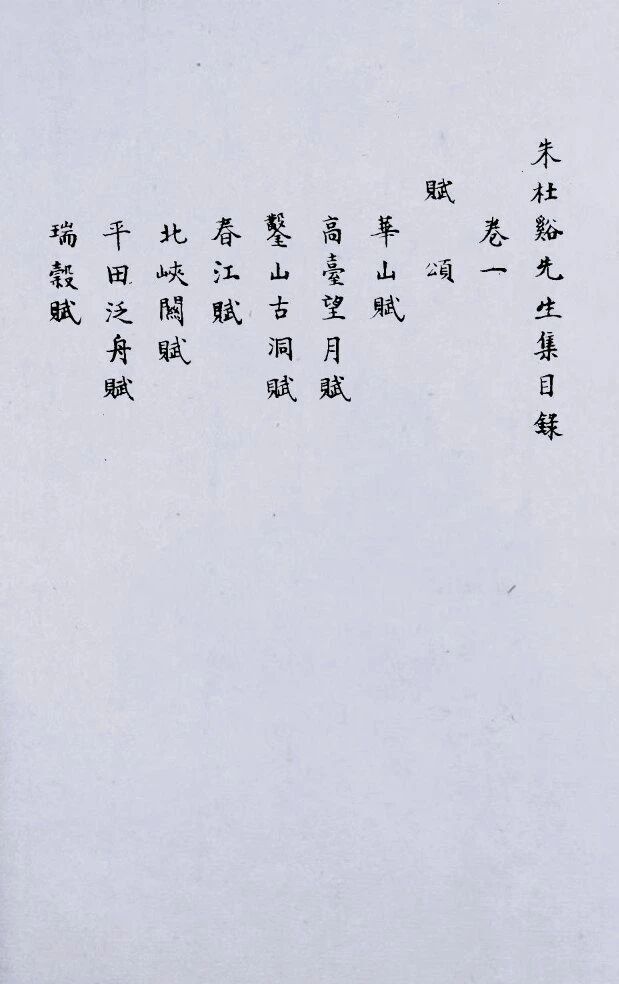 朱杜谿先生集目錄
卷一
賦　頌
華山賦
高臺望月賦
鑿山古洞賦
春江賦
北峽關賦
平田泛舟賦
瑞穀賦